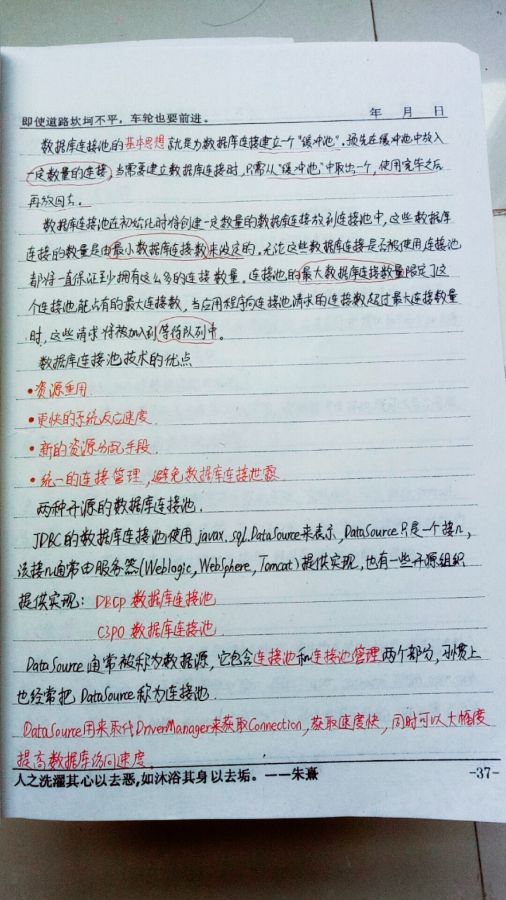 即使道路坎坷不平，车轮也要前进。 年 月 日
数据库连接池的基本思想就是为数据库连接建立一个“缓冲池”。预先在缓冲池中放入
一定数量的连接，当需要建立数据库连接时，只需从“缓冲池”中取出一个，使用完毕之后
再放回去。
数据库连接池在初始化时将创建一定数量的数据库连接放到连接池中，这些数据库
连接的数量是由最小数据库连接数来设定的。无论这些数据库连接是否被使用，连接池
都将一直保证至少拥有这么多的连接数量。连接池的最大数据库连接数量限定了这
个连接池能占有的最大连接数，当应用程序向连接池请求的连接数超过最大连接数量
时，这些请求将被加入到等待队列中。
数据库连接池技术的优点
•资源重用.
•更快的系统反应速度.
•新的资源分配手段.
•统一的连接管理，避免数据库连接泄露.
两种开源的数据库连接池.
JDBC的数据库连接池使用 javax.sql.DataSource来表示，DataSource只是一个接口，
该接口通常由服务器(Weblogic，WebSphere，Tomcat)提供实现，也有一些开源组织
提供实现：DBCP 数据库连接池
C3P0 数据库连接池
DataSource通常被称为数据源，它包含连接池和连接池管理两个部分，习惯上
也经常把 DataSource称为连接池.
DataSource用来取代DriverManager来获取Connection，获取速度快，同时可以大幅度
提高数据库访问速度.
人之洗濯其心以去恶,如沐浴其身以去垢。——朱熹 -37-